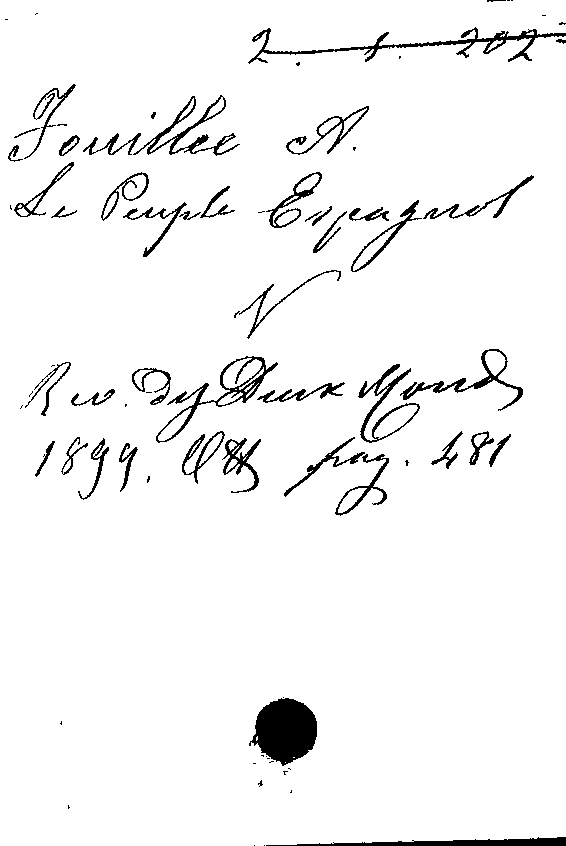 2. 1. 202
Fouillée A.
Le Peuple Espagnol
V
Rev. des Deux Mondes
1899. Ott pag. 481